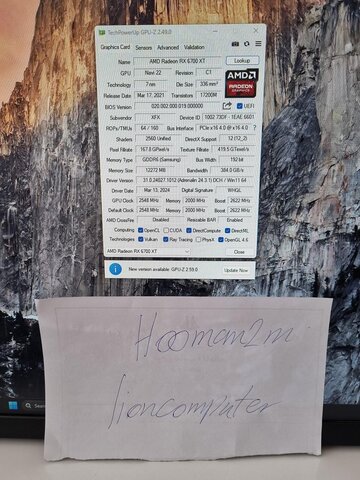 TechPowerUp GPU-Z 2.49.0
Graphics Card Sensors Advanced Validation
Name AMD Radeon RX 6700 XT Lookup
GPU Navi 22 Revision C1
AMD
Technology 7 nm Die Size 336 mm²
RADEON
GRAPHICS
Release Date Mar 17, 2021 Transistors 17200M
BIOS Version 020.002.000.019.000000 UEFI
Subvendor XFX Device ID 1002 73DF - 1EAE 6601
ROPs/TMUs 64 / 160 Bus Interface PCIe x16 4.0 @ x16 4.0 ?
Shaders 2560 Unified DirectX Support 12 (12_2)
Pixel Fillrate 167.8 GPixel/s Texture Fillrate 419.5 GTexel/s
Memory Type GDDR6 (Samsung) Bus Width 192 bit
Memory Size 12272 MB Bandwidth 384.0 GB/s
Driver Version 31.0.24027.1012 (Adrenalin 24.3.1) DCH / Win11 64
Driver Date Mar 13, 2024 Digital Signature WHQL
GPU Clock 2548 MHz Memory 2000 MHz Boost 2622 MHz
Default Clock 2548 MHz Memory 2000 MHz Boost 2622 MHz
AMD CrossFire Disabled Resizable BAR Enabled
Computing OpenCL CUDA DirectCompute DirectML
Technologies Vulkan Ray Tracing PhysX OpenGL 4.6
AMD Radeon RX 6700 XT Close
New version available: GPU-Z 2.59.0 Update Now
Hooman2m
lioncomputer
Sear